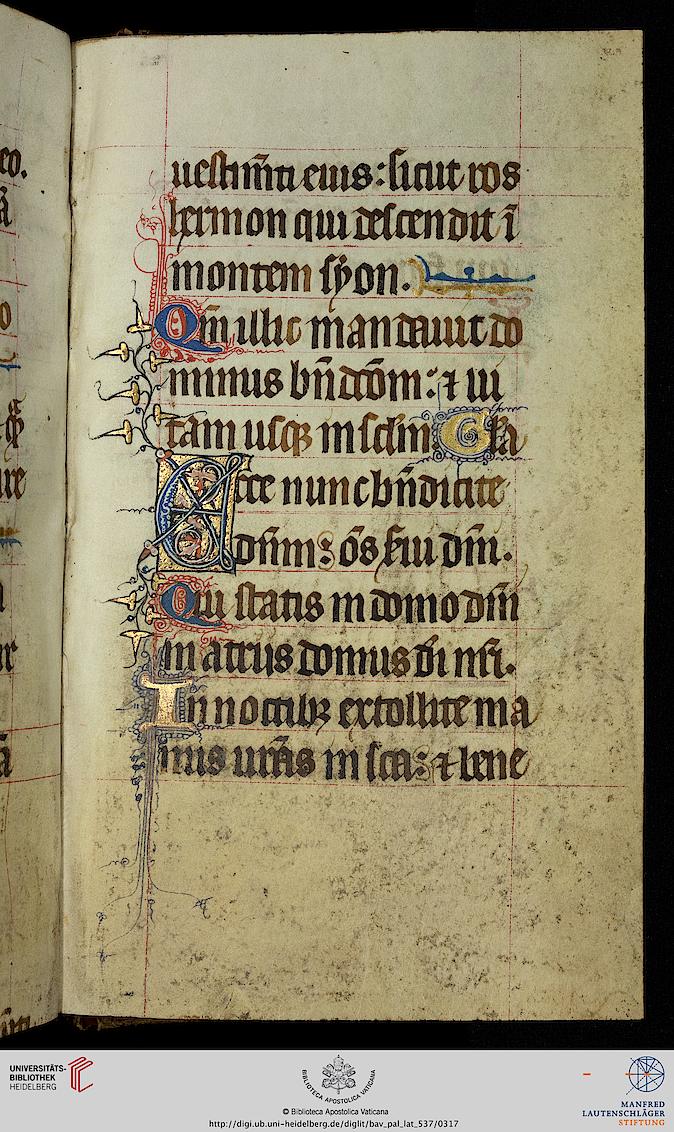 uestim̄ti eius: sicut ros
hermon qui descendit ī
montem syon.
Qm̄ illic mandauit do
minus bn̄dc̄om̄: ⁊ ui
tam usqꝫ in sclm̄ Gla
Ecce nunc bn̄dicite
dn̄m: om̄s sui dn̄i.
Qui statis in domo dn̄i
in atriis domus di nr̄i.
In noctibꝫ extollite ma
nus ur̄as in sca: ⁊ bene
UNIVERSITÄTS-
BIBLIOTHEK
HEIDELBERG
BIBLIOTECA APOSTOLICA VATICANA
© Biblioteca Apostolica Vaticana
http://digi.ub.uni-heidelberg.de/diglit/bav_pal_lat_537/0317
MANFRED
LAUTENSCHLÄGER
STIFTUNG